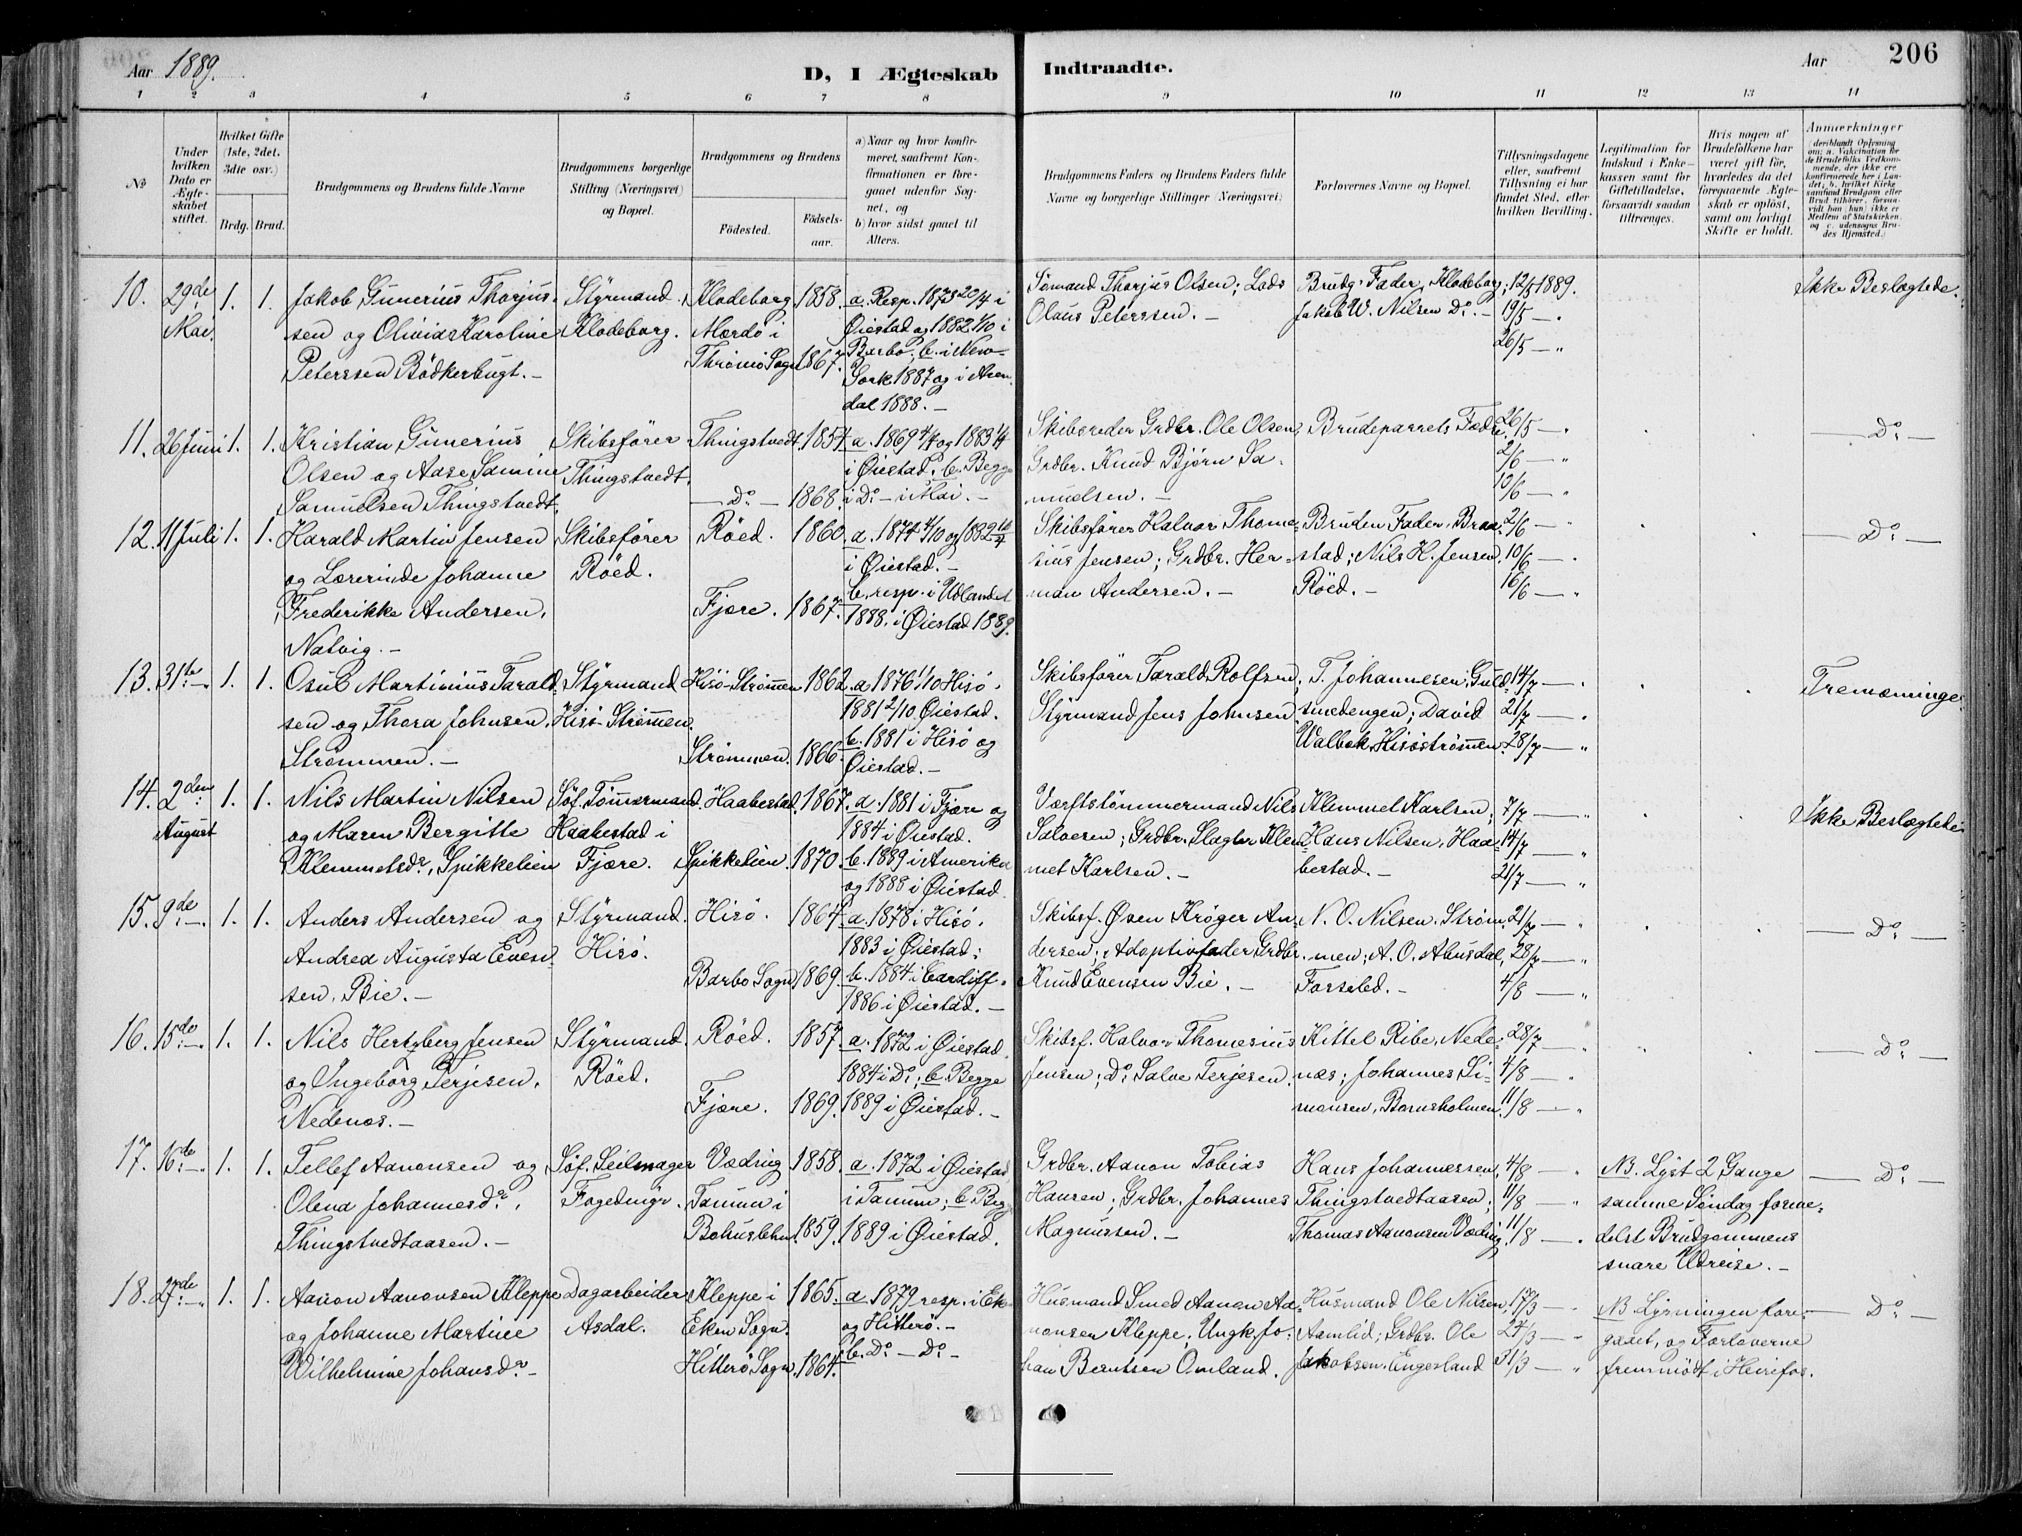 Aar 1889.
D, I Ægteskab Indtraadte.
Aar 206
1 2 3 4 5 6 7 8 9 10 11 12 13 14
No
Under hvilken Dato er Ægteskabet stiftet.
Hvilket Gifte (1ste, 2det, 3dte osv.)
Brdg. Brud.
Brudgommens og Brudens fulde Navne
Brudgommens borgerlige Stilling (Næringsvei) og Bopæl.
Brudgommens og Brudens
Födested.
Födselsaar.
a) Naar og hvor konfirmeret, saafremt Konfirmationen er foregaaet udenfor Sognet, og
b) hvor sidst gaaet til Alters.
Brudgommens Faders og Brudens Faders fulde Navne og borgerlige Stillinger (Næringsvei)
Forlovernes Navne og Bopæl.
Tillysningsdagene eller, saafremt Tillysning ei har fundet Sted, efter hvilken Bevilling.
Legitimation for Indskud i Enkekassen samt for Giftetilladelse, forsaavidt saadan tiltrænges.
Hvis nogen af Brudefolkene har været gift för, hvorledes da det foregaaende Ægteskab er oplöst, samt om lovligt Skifte er holdt.
Anmærkninger (deriblandt Oplysning om: a. Vakcination for de Brudefolks Vedkommende, der ikke ere konfirmerede her i Landet; b. hvilket Kirkesamfund Brudgom eller Brud tilhörer, forsaavidt han (hun) ikke er Medlem af Statskirken, og c. udensogns Brudes Hjemsted.)
10. 29de Mai. 1. 1. Jakob Gunerius Thorjussen og Olivia Karoline Peterssen Bödkerbugt.-
Styrmand. Klodeborg.
Klodeborg 1858. Mærdö i Thromö Sogn 1867.
a. Resp. 1873 20/4 i Öiestad og 1882 1/10 i Barbo; b. i New-York 1887 og i Arendal 1888.-
Sömand Thorjus Olsen; Lods Olaus Peterssen.-
Brudg. Fader, Klodeborg; Jakob W. Nilsen Do.-
12/5 1889. 19/5 - " 26/5 - "
Ikke Beslægtede.
11. 26 Juni 1. 1. Kristian Gunerius Olsen og Aase Samine Samuelsen Thingstvedt.
Skibsförer Thingstvedt.
Thingstvedt. 1854. - Do - 1868.
a. 1869 4/4 og 1883 1/4 i Öiestad. b. Begge i Do - i Mai.-
Skibsreder Grdbr. Ole Olsen, Grdbr. Knud Björn Samuelsen.-
Brudeparrets Fædre.
26/5 - " 2/6 - " 10/6 - "
- Do -
12. 11 Juli 1. 1. Harald Martin Jensen og Lærerinde Johanne Frederikke Andersen, Natvig.-
Skibsförer Röed.
Röed. 1860. Fjære. 1867.
a. 1874 4/10 og 1882 i Öiestad.- b. resp. i Udlandet 1888. i Öiestad 1889.
Skibsförer Halvor Thomesius Jensen; Grdbr. Herman Andersen.-
Bruden Fader, Braastad; Nils H. Jensen Röed.-
2/6 - " 10/6 - " 16/6 - "
- Do -
13. 31te - 1. 1. Osul Martinius Taraldsen og Thora Johnsen, Strömmen.-
Styrmand Hisö-Strömmen.
Hisö-Strömmen 1862. Strömmen. 1866.
a. 1876 1/10 Hisö. 1881 2/10 Öiestad. b. 1881 i Hisö og Öiestad.-
Skibsförer Tarald Rolfsen; Styrmand Jens Johnsen
T. Johannesen, Guldsmedengen; David Walbok, Hisöströmmen.
14/7 - " 21/7 - " 28/7 - "
Tremæninge.
14. 2den August 1. 1. Nils Martin Nilsen og Maren Bergitte Klemmetsdr., Spikkelien
Söf. Tömmermand. Haabestad i Fjære.
Haabestad. 1867. Spikkelien. 1870.
a. 1881 i Fjære og 1884 i Öiestad. b. 1889 i Amerika og 1888 i Öiestad
Værftstömmermand Nils Salvesen; Grdbr. Slagter Klemmet Karlsen.-
Klemmet Karlsen; Hans Nilsen, Haabestad.-
7/7 - " 14/7 - " 21/7 - "
Ikke Beslægtede
15. 9de - 1. 1. Anders Andersen og Andrea Augusta Evensen, Bie.-
Styrmand. Hisö.
Hisö. 1864. Barbo Sogn 1869.
a. 1878 i Hisö. 1883 i Öiestad; b. 1884 i Cardiff. 1886 i Öiestad.-
Skibsf. Oven Kröger Andersen; Adoptivfader Grdbr. Knud Evensen Bie.-
N. O. Nilsen, Strömmen; A. O. Abusdal, Forseled.-
21/7 - " 28/7 - " 4/8 - "
- Do -
16. 15de - 1. 1. Nils Hertzberg Jensen og Ingeborg Terjesen, Nedenæs.-
Styrmand. Röed.
Röed. 1857. Fjære. 1869.
a. 1872 i Öiestad. 1884 i Do; b. Begge 1889 i Öiestad.-
Skibsf. Halvor Thomesius Jensen; Do Salve Terjesen.
Kittel Ribe, Nedenæs; Johannes Simonsen, Bornsholmen.
28/7 - " 4/8 - " 11/8 - "
- Do -
17. 16de - 1. 1. Tellef Aanonsen og Olena Johannesdr., Thingstvedtaasen.-
Söf. Seilmager Fogedmyr.
Vædrug 1858. Tanum i Bohuslehn. 1859.
a. 1872 i Öiestad, i Tanum; b. Begge 1889 i Öiestad.
Grdbr. Aanon Tobias Hansen; Grdbr. Johannes Magnussen.-
Hans Johannessen, Thingstvedtaasen; Thomas Aanonsen Vædrug.
4/8 - " 11/8 - " 11/8 - "
NB. Lyst 2 Gange samme Söndag formedelst Brudgommens snare Udreise.-
- Do -
18. 27de - 1. 1. Aanon Aanonsen Kleppe og Johanne Martine Wilhelmine Johansdr.-
Dagarbeider Asdal.
Kleppe i Eken Sogn. 1865. Hitterö Sogn. 1864.
a. 1879 resp. i Eken og Hitterö.- b. Do - Do -
Husmand Smed Aanon Aanonsen Kleppe; Ungk. Johan Berntsen Omland.
Husmand Ole Nilsen, Aamlid; Grdbr. Ole Jakobsen Engesland
17/3 - " 24/3 - " 31/3 - "
NB. Lysningen foregaaet, og Forloverne fremmödt i Heirefos.
- Do -